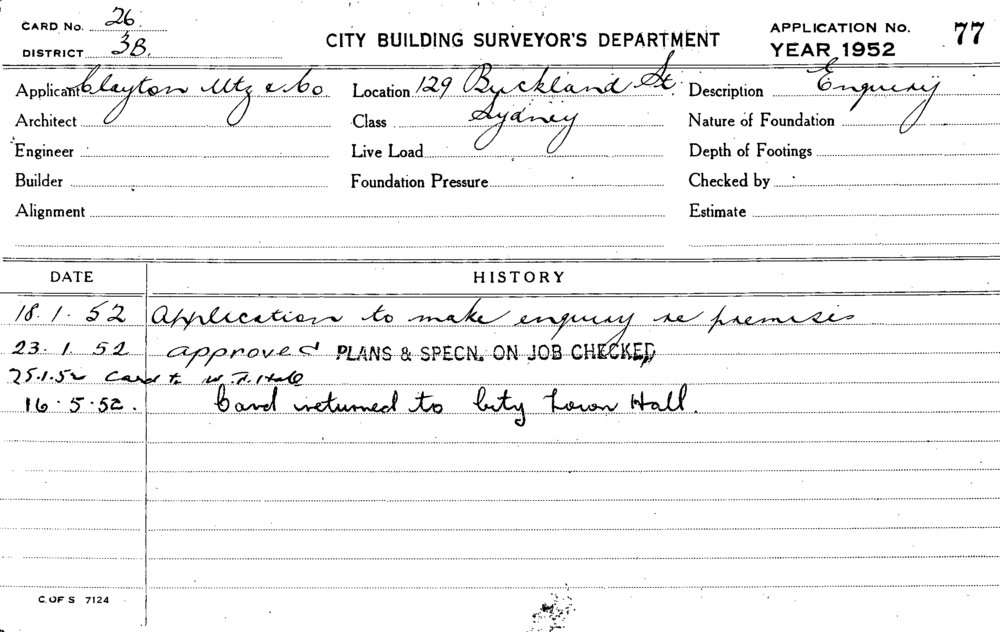 CARD No. 26.
DISTRICT 3B.
CITY BUILDING SURVEYOR'S DEPARTMENT
APPLICATION No. 77
YEAR 1952
Applicant Clayton Utz & Co Location 129 Buckland St. Description Enquiry
Architect Class Sydney Nature of Foundation
Engineer Live Load Depth of Footings
Builder Foundation Pressure Checked by
Alignment Estimate
DATE HISTORY
18.1.52 Application to make enquiry re premises
23.1.52 approved PLANS & SPECN. ON JOB CHECKED
25.1.52 Card to Hall
16.5.52. Card returned to City Town Hall.
C. OF S 7124